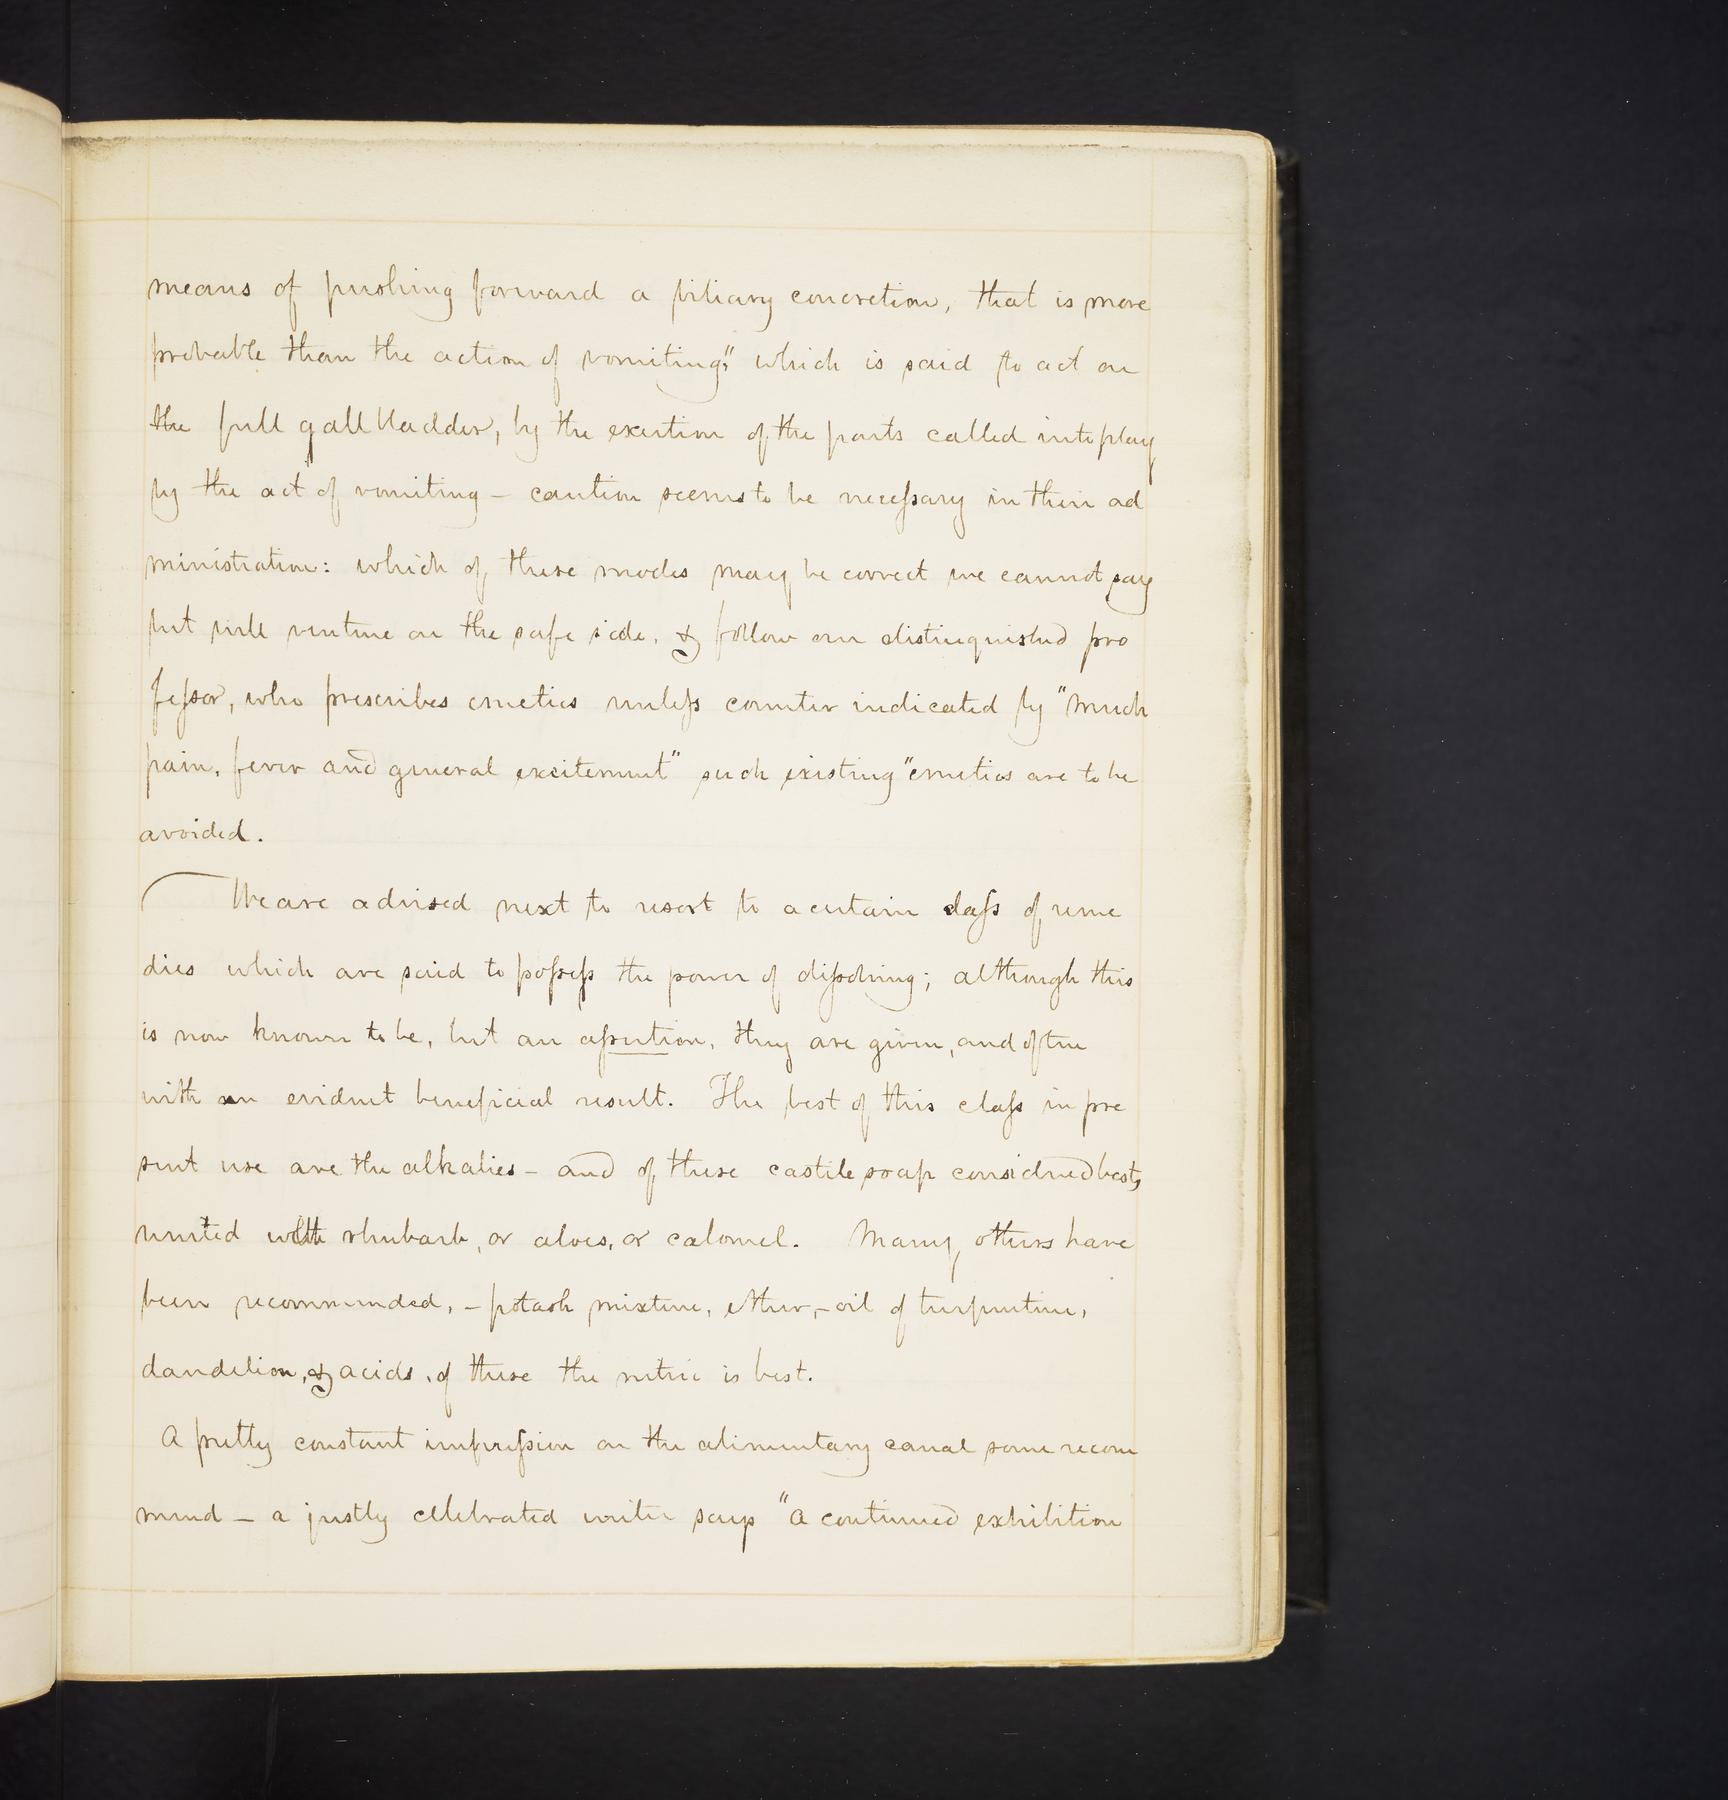 means of pushing forward a biliary concretion, that is more
probable than the action of vomiting," which is said to act on
the full gall bladder, by the exertion of the parts called into play
by the act of vomiting – caution seems to be necessary in their ad
ministration: which of these modes may be correct we cannot say
but will venture on the safe side, & follow our distinguished pro
fessor, who prescribes emetics unless counter indicated by "much
pain, fever and general excitement" such existing "emetics are to be
avoided.
We are advised next to resort to a certain class of reme
dies which are said to possess the power of dissolving; although this
is now known to be, but an assertion, they are given, and often
with an evident beneficial result. The best of this class in pre
sent use are the alkalies – and of these castile soap considered best,
united with rhubarb, or aloes, or calomel. Many others have
been recommended, – potash mixture, ether, – oil of turpentine,
dandelion, & acids, of these the nitric is best.
A pretty constant impression on the alimentary canal some recom
mend – a justly celebrated writer says "a continued exhibition